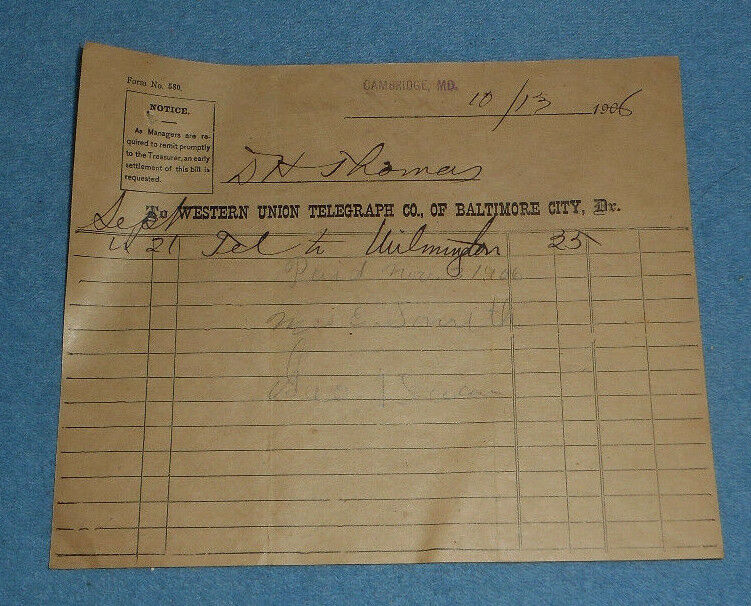 Form No. 580.
NOTICE.
As Managers are re-
quired to remit promptly
to the Treasurer, an early
settlement of this bill is
requested.
CAMBRIDGE, MD.
10/13 1906
D H Thomas
To WESTERN UNION TELEGRAPH CO., OF BALTIMORE CITY, Dr.
Sept
21 Tel to Wilmington 25
Paid Nov 1906